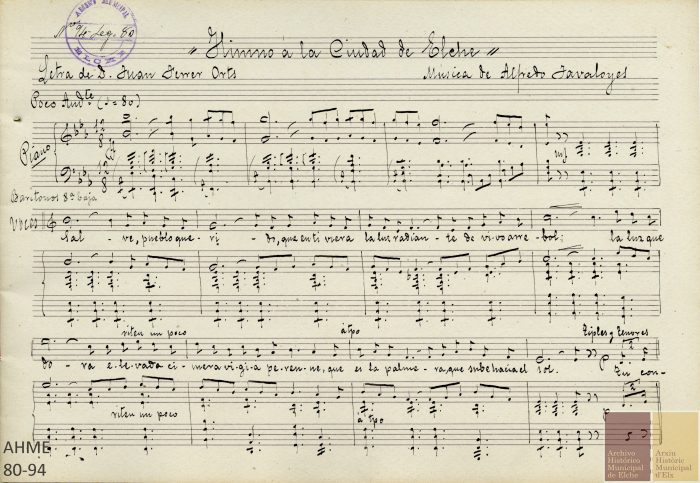 ARCHIVO MUNICIPAL
ELCHE
Leg. 80
"Himno a la Ciudad de Elche"
Letra de D. Juan Ferrer Orts Musica de Alfredo Javaloyes
Poco Andte (♩=80)
Piano
Baritonos 8ª baja
Voces
Sal-ve, pueblo que-ri-do, que en ti viera la luz radian-te de vivo arre-bol; la luz que
riten un poco a tpo Tiples y Tenores
do-ra e-levada ci-mera vi-gi-a pe-ren-ne, que es la palme-ra, que sube hacia el sol. Tu con-
riten un poco a tpo
AHME
80-94
Archivo Histórico Municipal de Elche
Arxiu Històric Municipal d'Elx